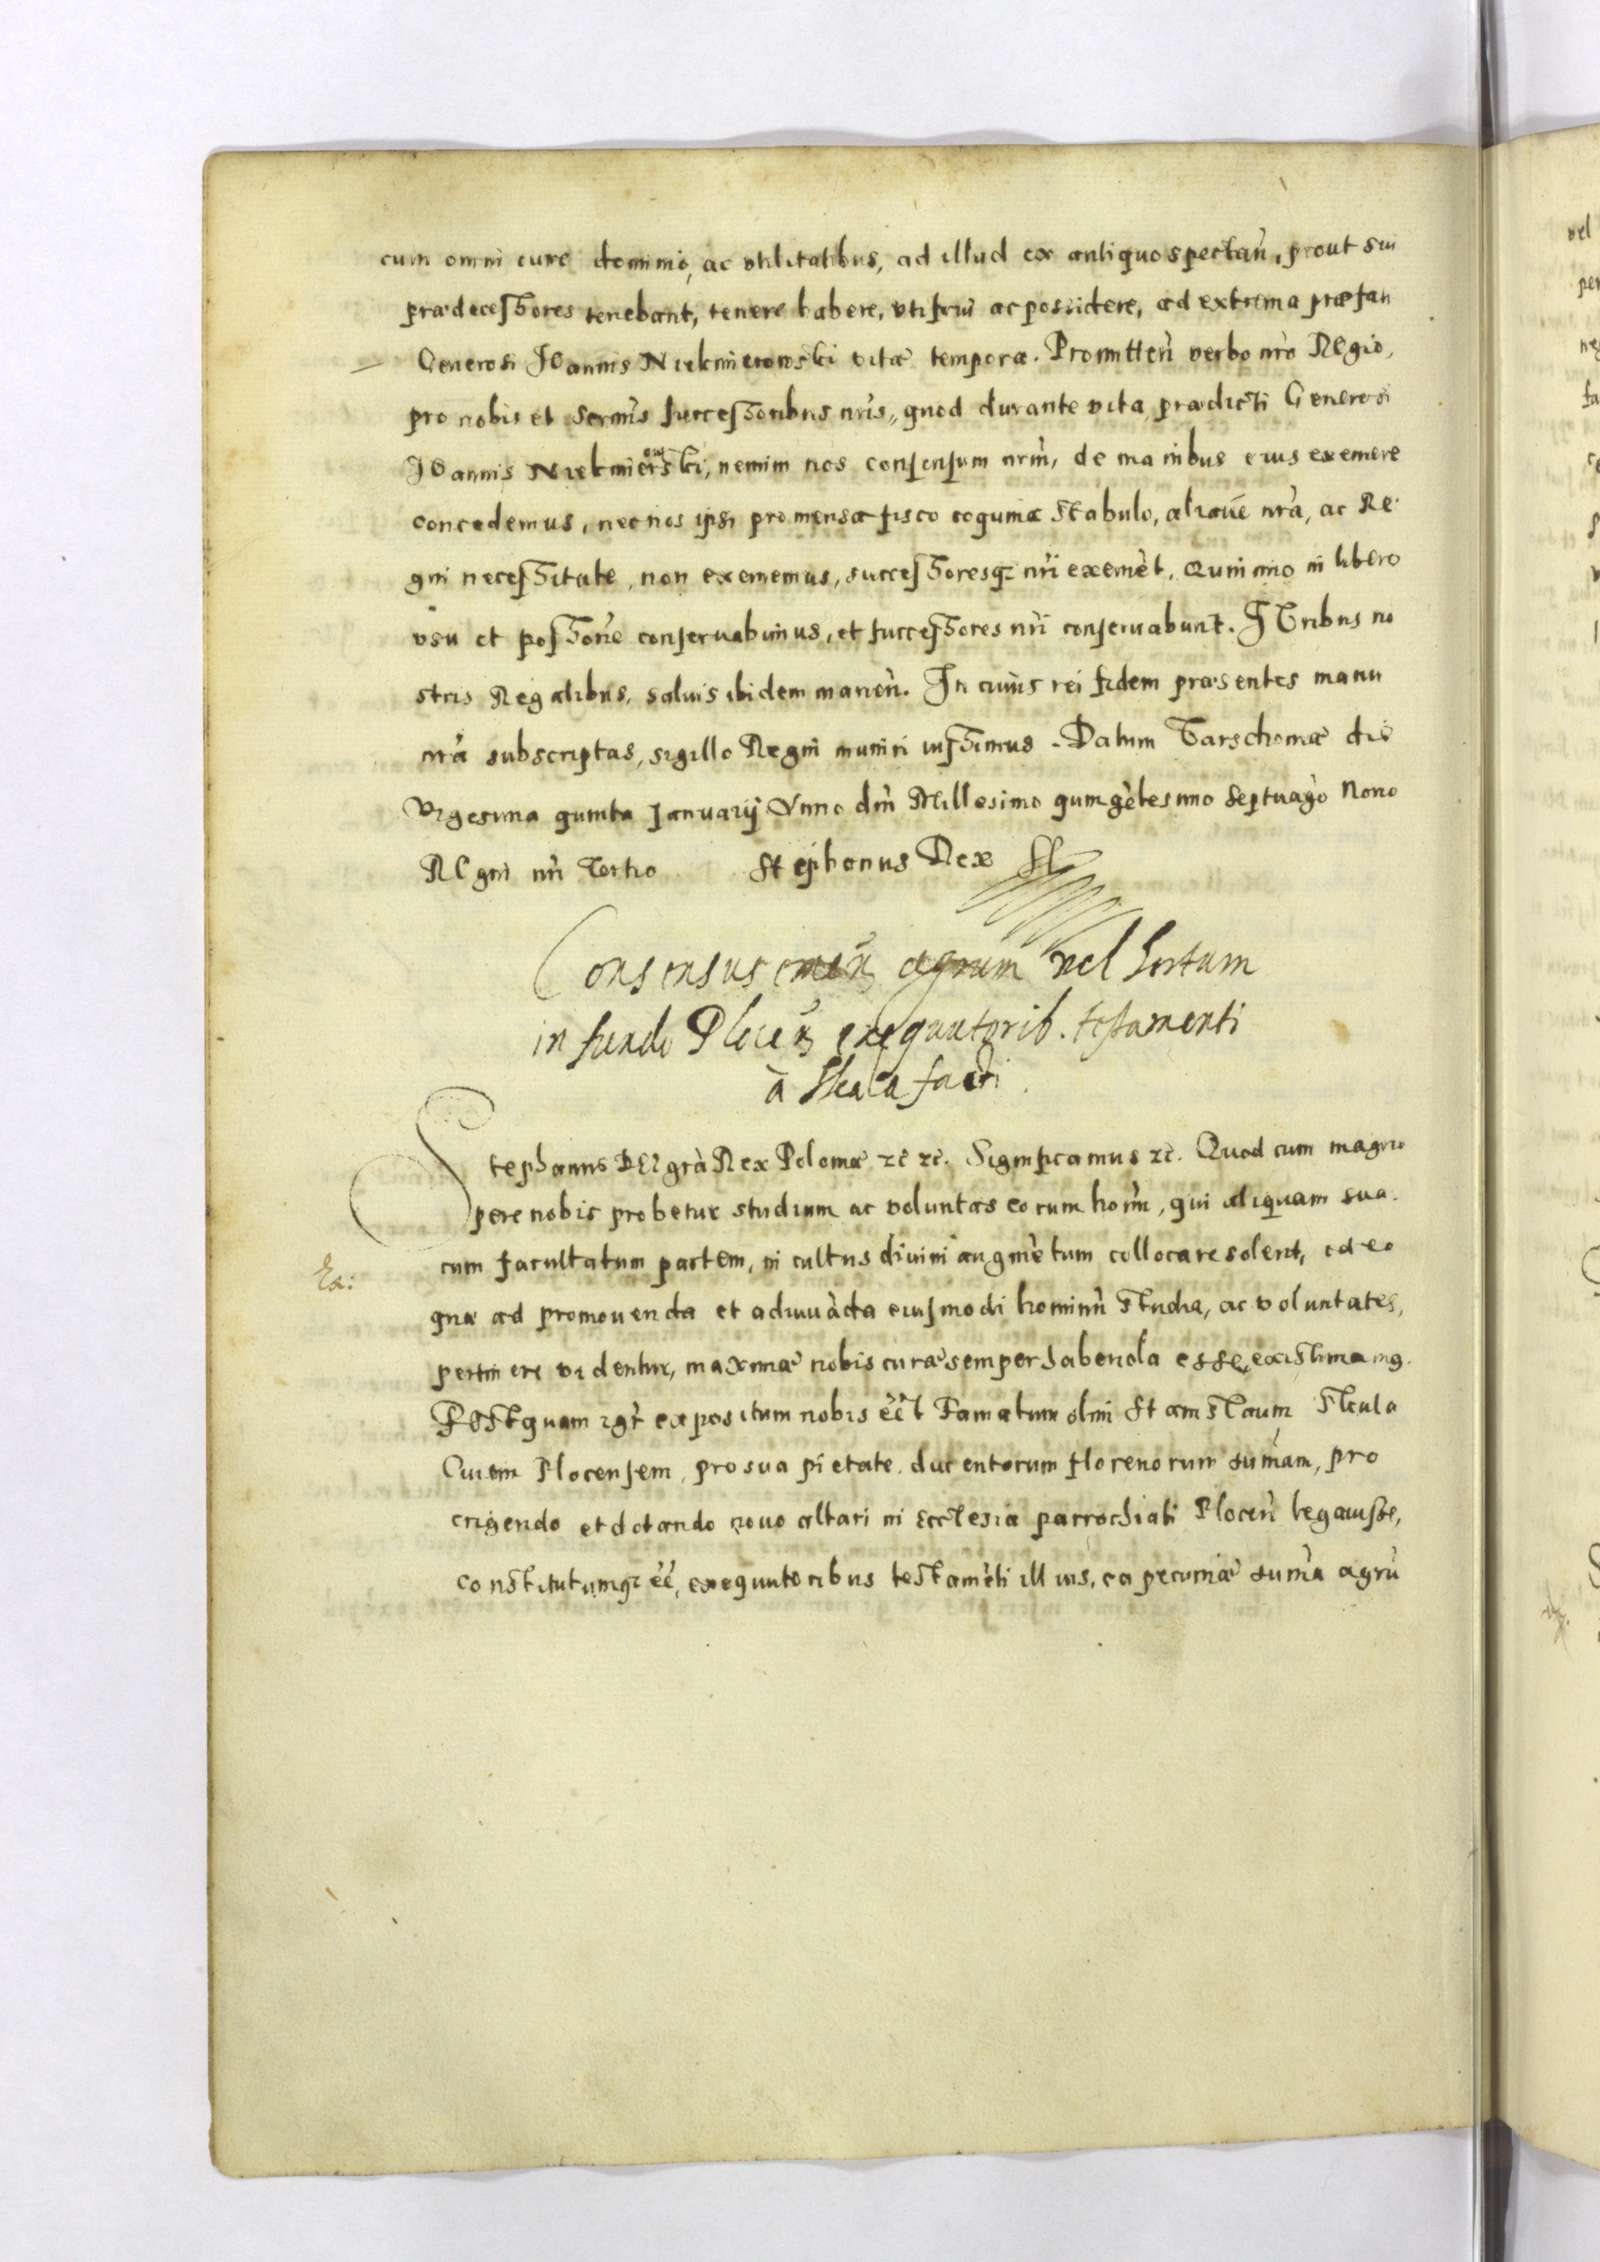 cum omni iure dominio, ac utilitatibus, ad illud ex antiquo spectan̄, prout sui
prædecessores tenebant, tenere habere, uti frui ac possidere, ad extrema præfan
Generosi Joannis Niekmierowski vitæ tempora. Promitten̄ verbo nr̄o Regio,
pro nobis et Serm̄is successoribus nr̄is, quod durante vita prædicti Generosi
Joannis Niekmierowski, nemini nos consensum nrm̄, de manibus eius eximere
concedemus, nec nos ipsi pro mensa fisco coquina stabulo, aliaue nr̄a, ac Re
gni necessitate, non eximemus, successoresq; nr̄i eximēt. Quinimo in libero
usu et possōne conseruabimus, et successores nr̄i conseruabunt. Juribus no
stris Regalibus, saluis ibidem manen̄. In cuius rei fidem præsentes manu
nr̄a subscriptas, sigillo Regni muniri iussimus. Datum Varschouiæ die
vigesima quinta Januarij Anno dn̄i Millesimo quingētesimo Septuagō Nono
Regni nr̄i Tertio Stephanus Rex
Consensus emen̄ agrum vel hortum
in fundo Plocen̄ exequutorib. testamenti
à Skala facti
Stephanus DEI grā Rex Poloniæ zc̄ zc̄. Significamus zc̄. Quod cum magno
pere nobis probetur studium ac voluntas eorum hoīm, qui aliquam sua
rum facultatum partem, in cultus diuini augmētum collocare solent, ea eo
Ra:
quæ ad promouenda et adiuuāda eiusmodi hominū studia, ac voluntates,
pertinere videntur, maximæ nobis curæ semper habenda esse, existimamus.
Postquam igr̄ expositum nobis eēt Famatum olim Stanislaum Skala
Ciuem Plocensem, pro sua pietate ducentorum florenorum sum̄am, pro
erigendo et dotando nouo altari in Ecclesia parrochiali Plocen̄ legauisse,
constitutumq; eē, exequutoribus testamēti illius, ea pecuniæ sum̄a agrū